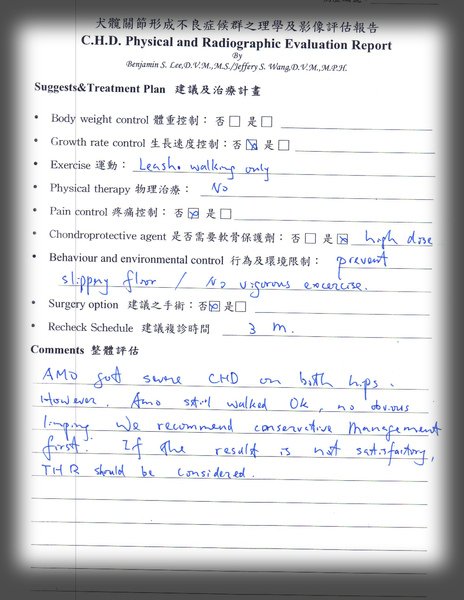 犬髖關節形成不良症候群之理學及影像評估報告
C.H.D. Physical and Radiographic Evaluation Report
By
Benjamin S. Lee,D.V.M.,M.S./Jeffery S. Wang,D.V.M.,M.P.H.
Suggests&Treatment Plan 建議及治療計畫
• Body weight control 體重控制：否 □ 是 □
• Growth rate control 生長速度控制：否 ☒ 是 □
• Exercise 運動： Leash walking only
• Physical therapy 物理治療： No
• Pain control 疼痛控制： 否 ☒ 是 □
• Chondroprotective agent 是否需要軟骨保護劑：否 □ 是 ☒ high dose
• Behaviour and environmental control 行為及環境限制： prevent
slippry floor / No vigorous excercise.
• Surgery option 建議之手術：否 ☒ 是 □
• Recheck Schedule 建議複診時間 3 m.
Comments 整體評估
AMO got severe CHD on both hips.
However, Amo still walked Ok, no obvious
limping. We recommend conservative management
first. If the result is not satisfactory,
THR should be considered.